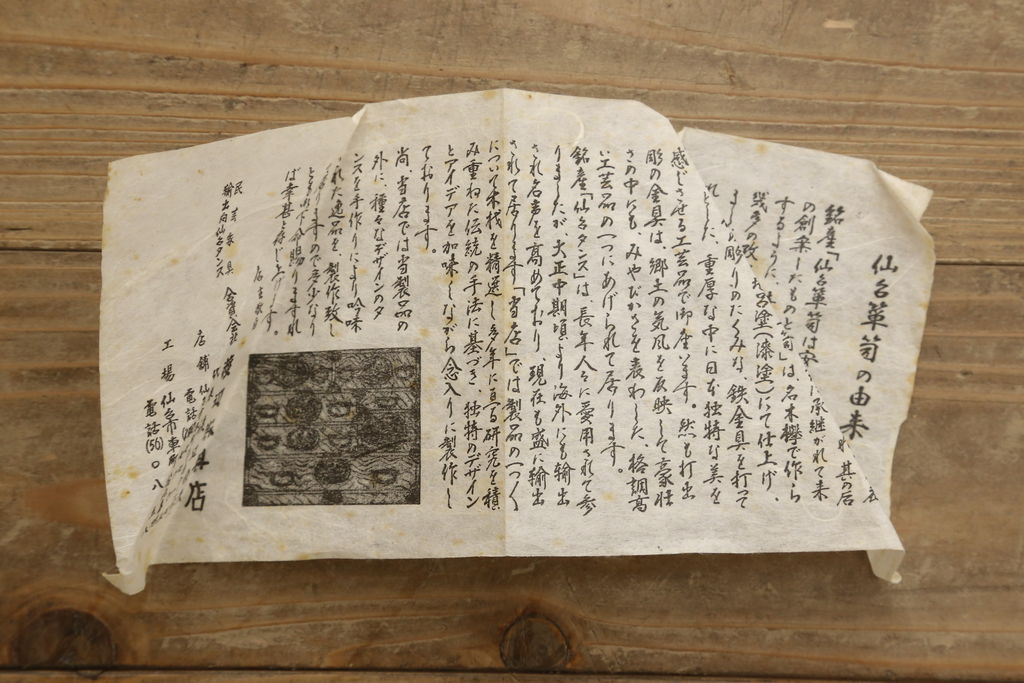 仙台箪笥の由来
銘産「仙台箪笥は
の創案したものと
するように、
幾多の改
感じさせる工芸品で御座います。然も打出
彫の金具は、郷土の気風を反映して豪壮
さの中にも、みやびかさを表わした、格調高
い工芸品の一つにあげられて居ります。
銘産「仙台タンス」は、長年人々に愛用されて参
りましたが、大正中期頃より海外にも輸出
され名声を高めており、現在も盛に輸出
されて居ります「当店」では製品の一つ一つ
について木材を精選し多年に亘る研究を積
み重ねた伝統の手法に基づき、独特のデザイン
とアイデアを加味しながら念入りに製作し
ております。
尚、当店では当製品の
外に、種々なデザインのタ
ンスを手作りにより吟味
された逸品を、製作致し
ば幸甚と存じ上げます。
店主敬白
民芸家具
輸出向仙台タンス
合資会社
店
店舗
電話
工場 仙台市
電話(56)〇八
承継がれて来
其の后
」は、名木欅で作ら
呂塗(漆塗)にて仕上げ、
彫りのたくみな、鉄金具を打って
重厚な中に日本独特な美を